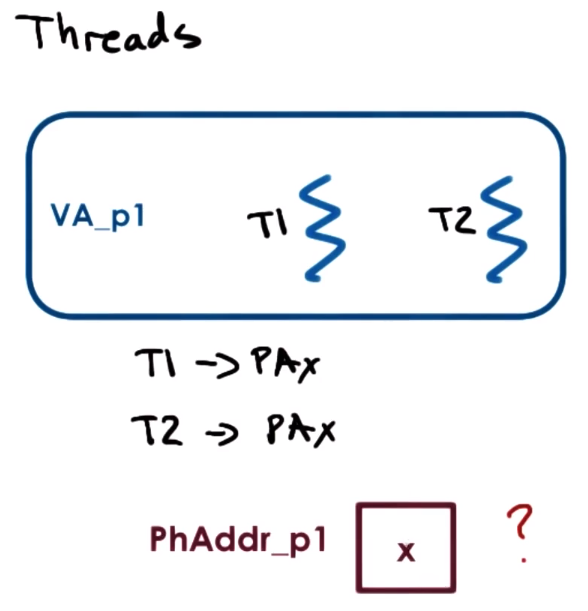 Threads
VA_p1 T1 T2
T1 -> PAx
T2 -> PAx
PhAddr_p1 x ?